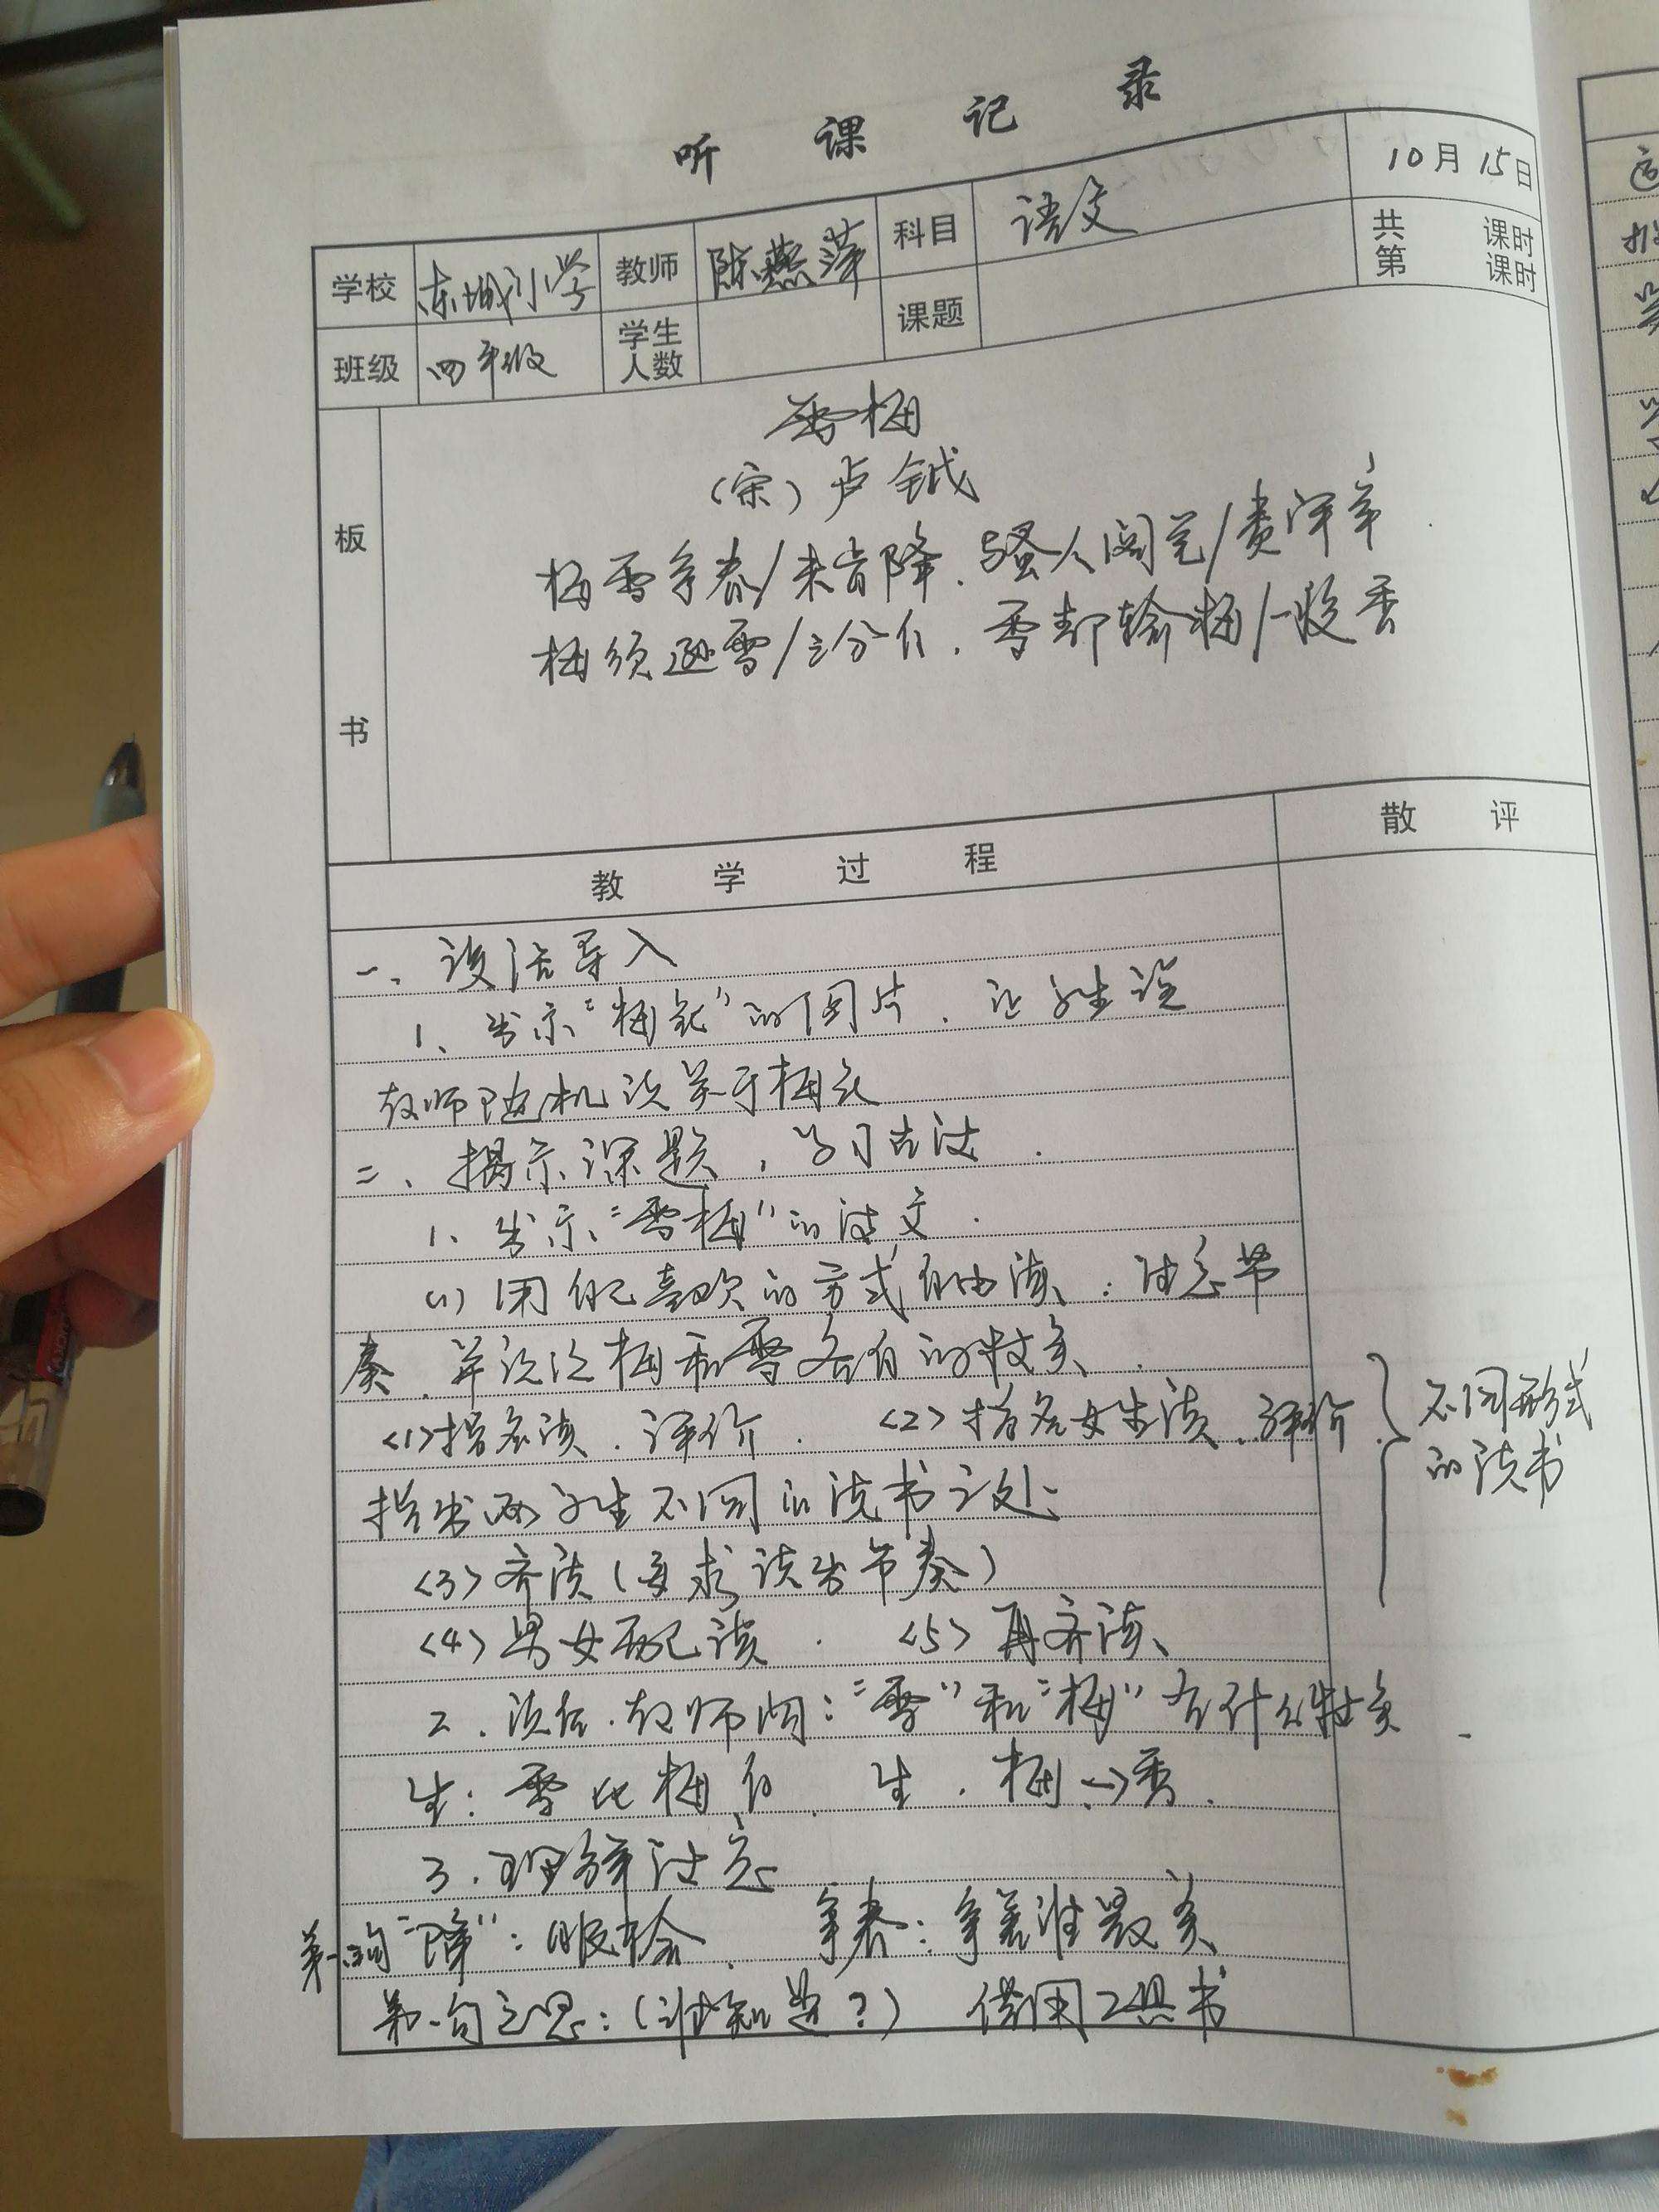 听课记录
10月15日
学校 东城小学 教师 陈燕萍 科目 语文 共 课时
第 课时
班级 四年级 学生人数 课题
板书
雪梅
（宋）卢钺
梅雪争春/未肯降、骚人阁笔/费评章
梅须逊雪/三分白、雪却输梅/一段香
教学过程 散评
一、谈话导入
1、出示“梅花”的图片、让学生说
教师随机说关于梅花
二、揭示课题，学习古诗．
1、出示“雪梅”的诗文．
(1) 用自己喜欢的方式自由读、：注意节
奏、并说说梅和雪各有的特点．
<1>指名读、评价． <2>指名女生读、评价
不同形式
的读书
指出两学生不同的读书之处：
<3>齐读（要求读出节奏）
<4>男女配读． <5>再齐读、
2．读后．教师问：“雪”和“梅”有什么特点
生：雪比梅白、生．梅→香．
3．理解诗意
第一句“降”：服输、争春：争着谁最美
第一句之思：（谁知道？） 借用工具书